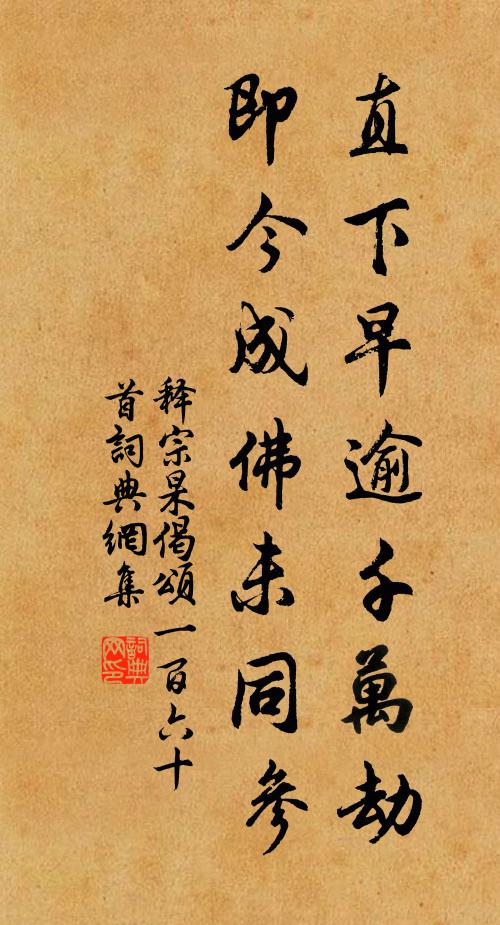 直下早逾千萬劫
即今成佛未同參
释宗杲偈頌一百六十
首詞典網集
詞典
网印